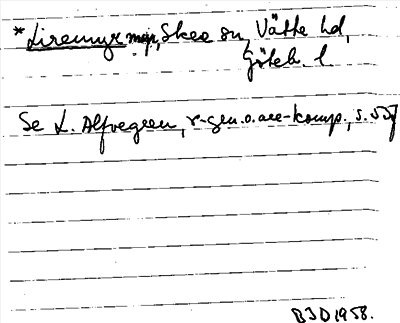 *Liremyr myr, Skee sn, Vätte hd,
Göteb. l.
Se L. Alfvegren, r-gen. o. ack-komp., s. 557
BJD 1958.